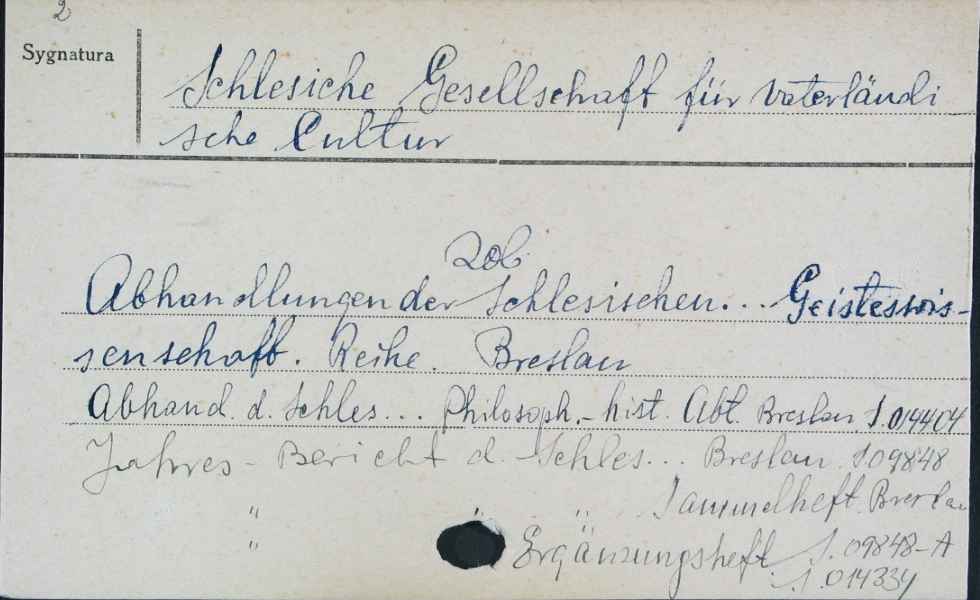 2
Sygnatura
Schlesiche Gesellschaft für vaterländi
sche Cultur
zob.
Abhandlungen der Schlesischen... Geisteswis-
senschaft. Reihe. Breslau
Abhand. d. Schles... Philosoph.-hist. Abt. Breslau S.014404
Jahres-Bericht d. Schles... Breslau S 09848
" " " Sammelheft Breslau
" Ergänzungsheft S. 09848-A
S. 014334